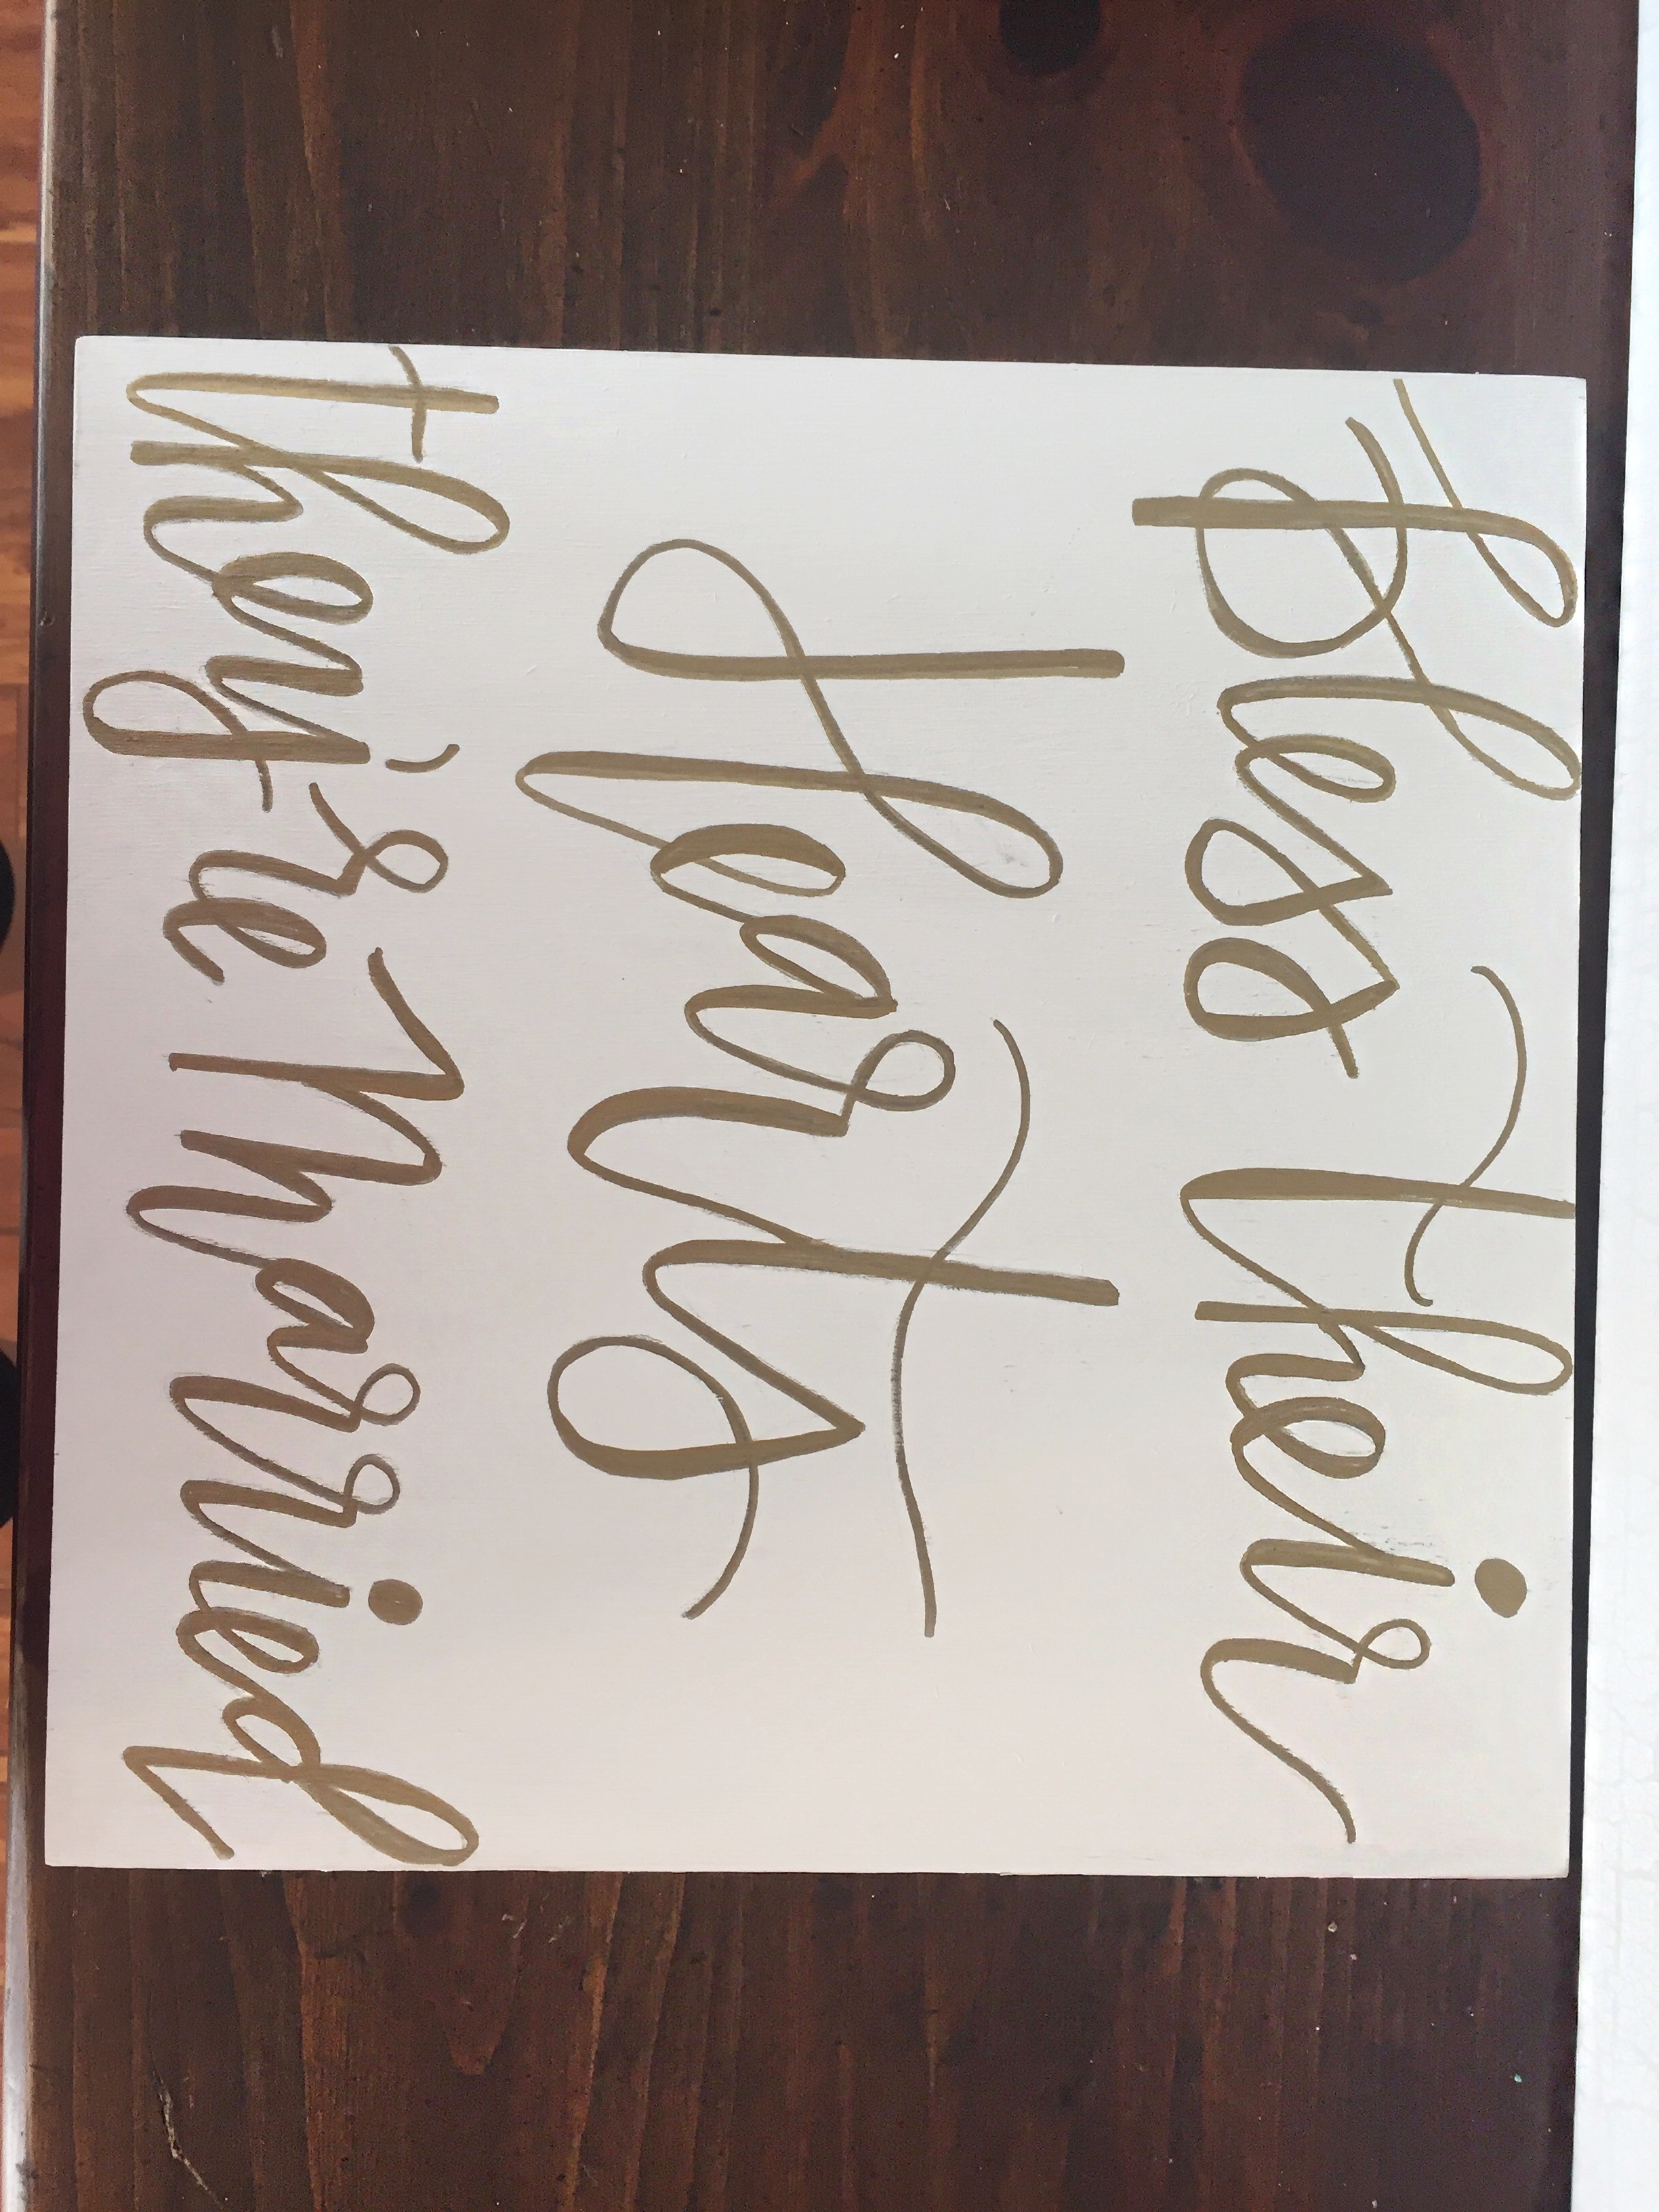 Bless their
Hearts
they're Married